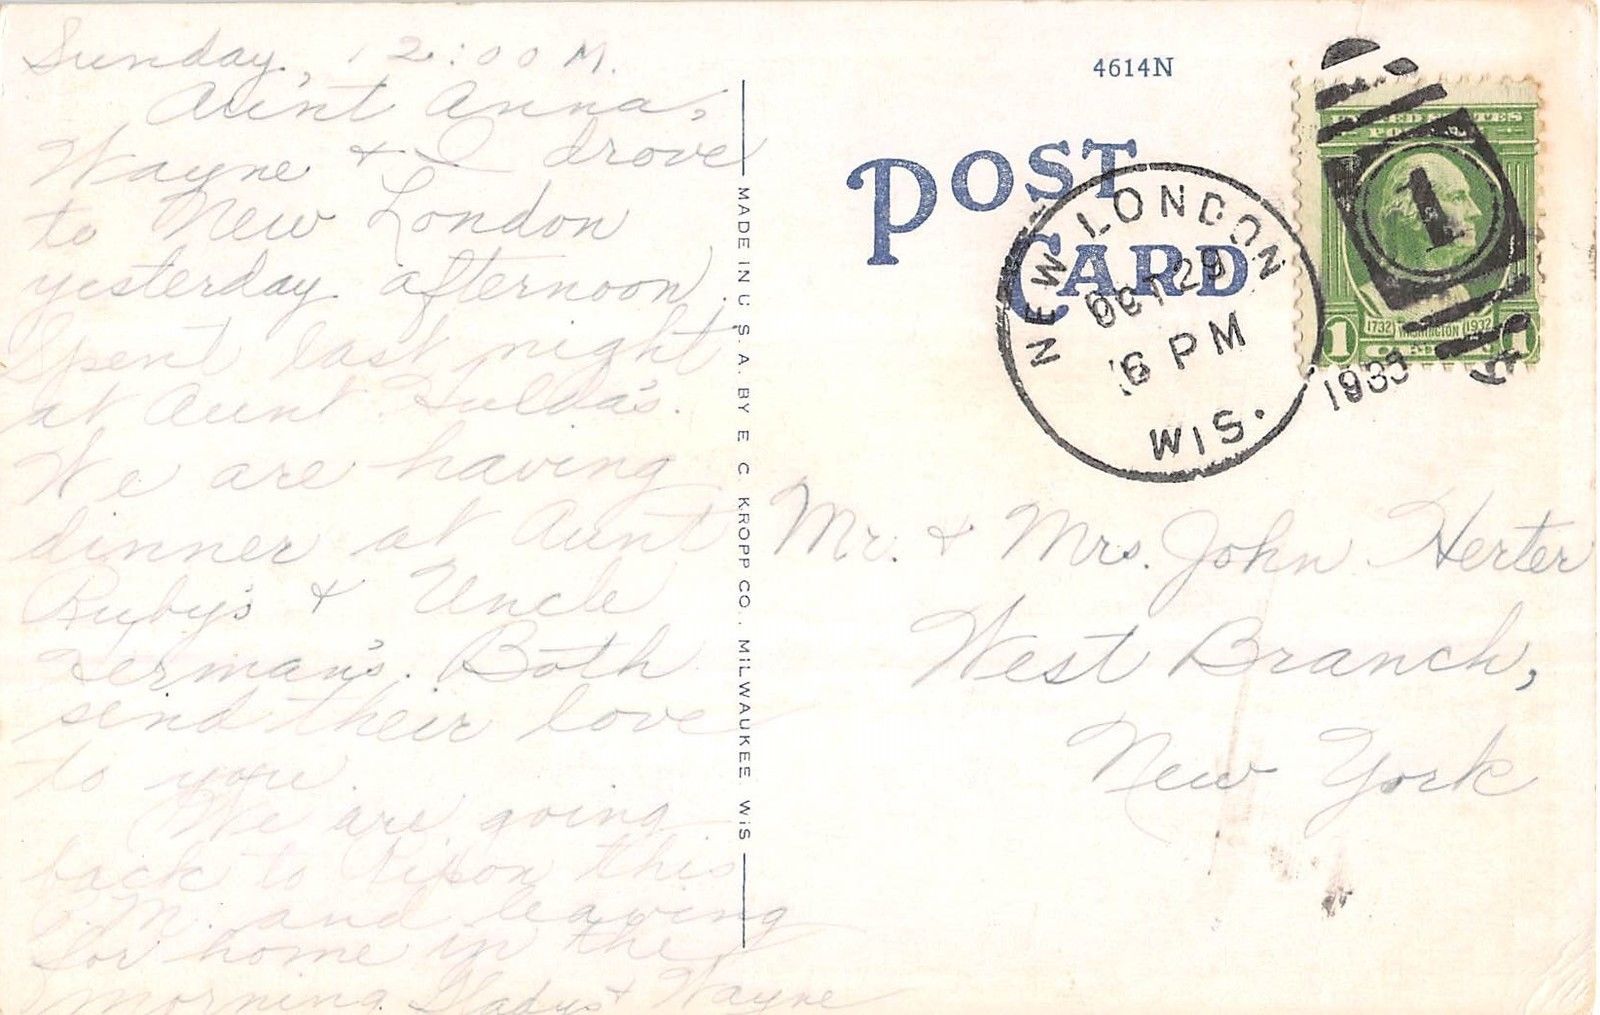 Sunday, 12:00 M.
Aunt Anna,
Wayne & I drove
to New London
yesterday afternoon
Spent last night
at Aunt Hulda's.
We are having
dinner at Aunt
Ruby's & Uncle
Herman's. Both
send their love
to you.
We are going
back to Ripon this
P.M. and leaving
for home in the
morning. Gladys & Wayne
MADE IN U. S. A. BY E. C. KROPP CO., MILWAUKEE, WIS
4614N
POST
CARD
NEW LONDON
OCT 29
6 PM
1933
WIS.
UNITED STATES
POSTAGE
1
1732 WASHINGTON 1932
1 1
Mr. & Mrs. John Herter
West Branch,
New York